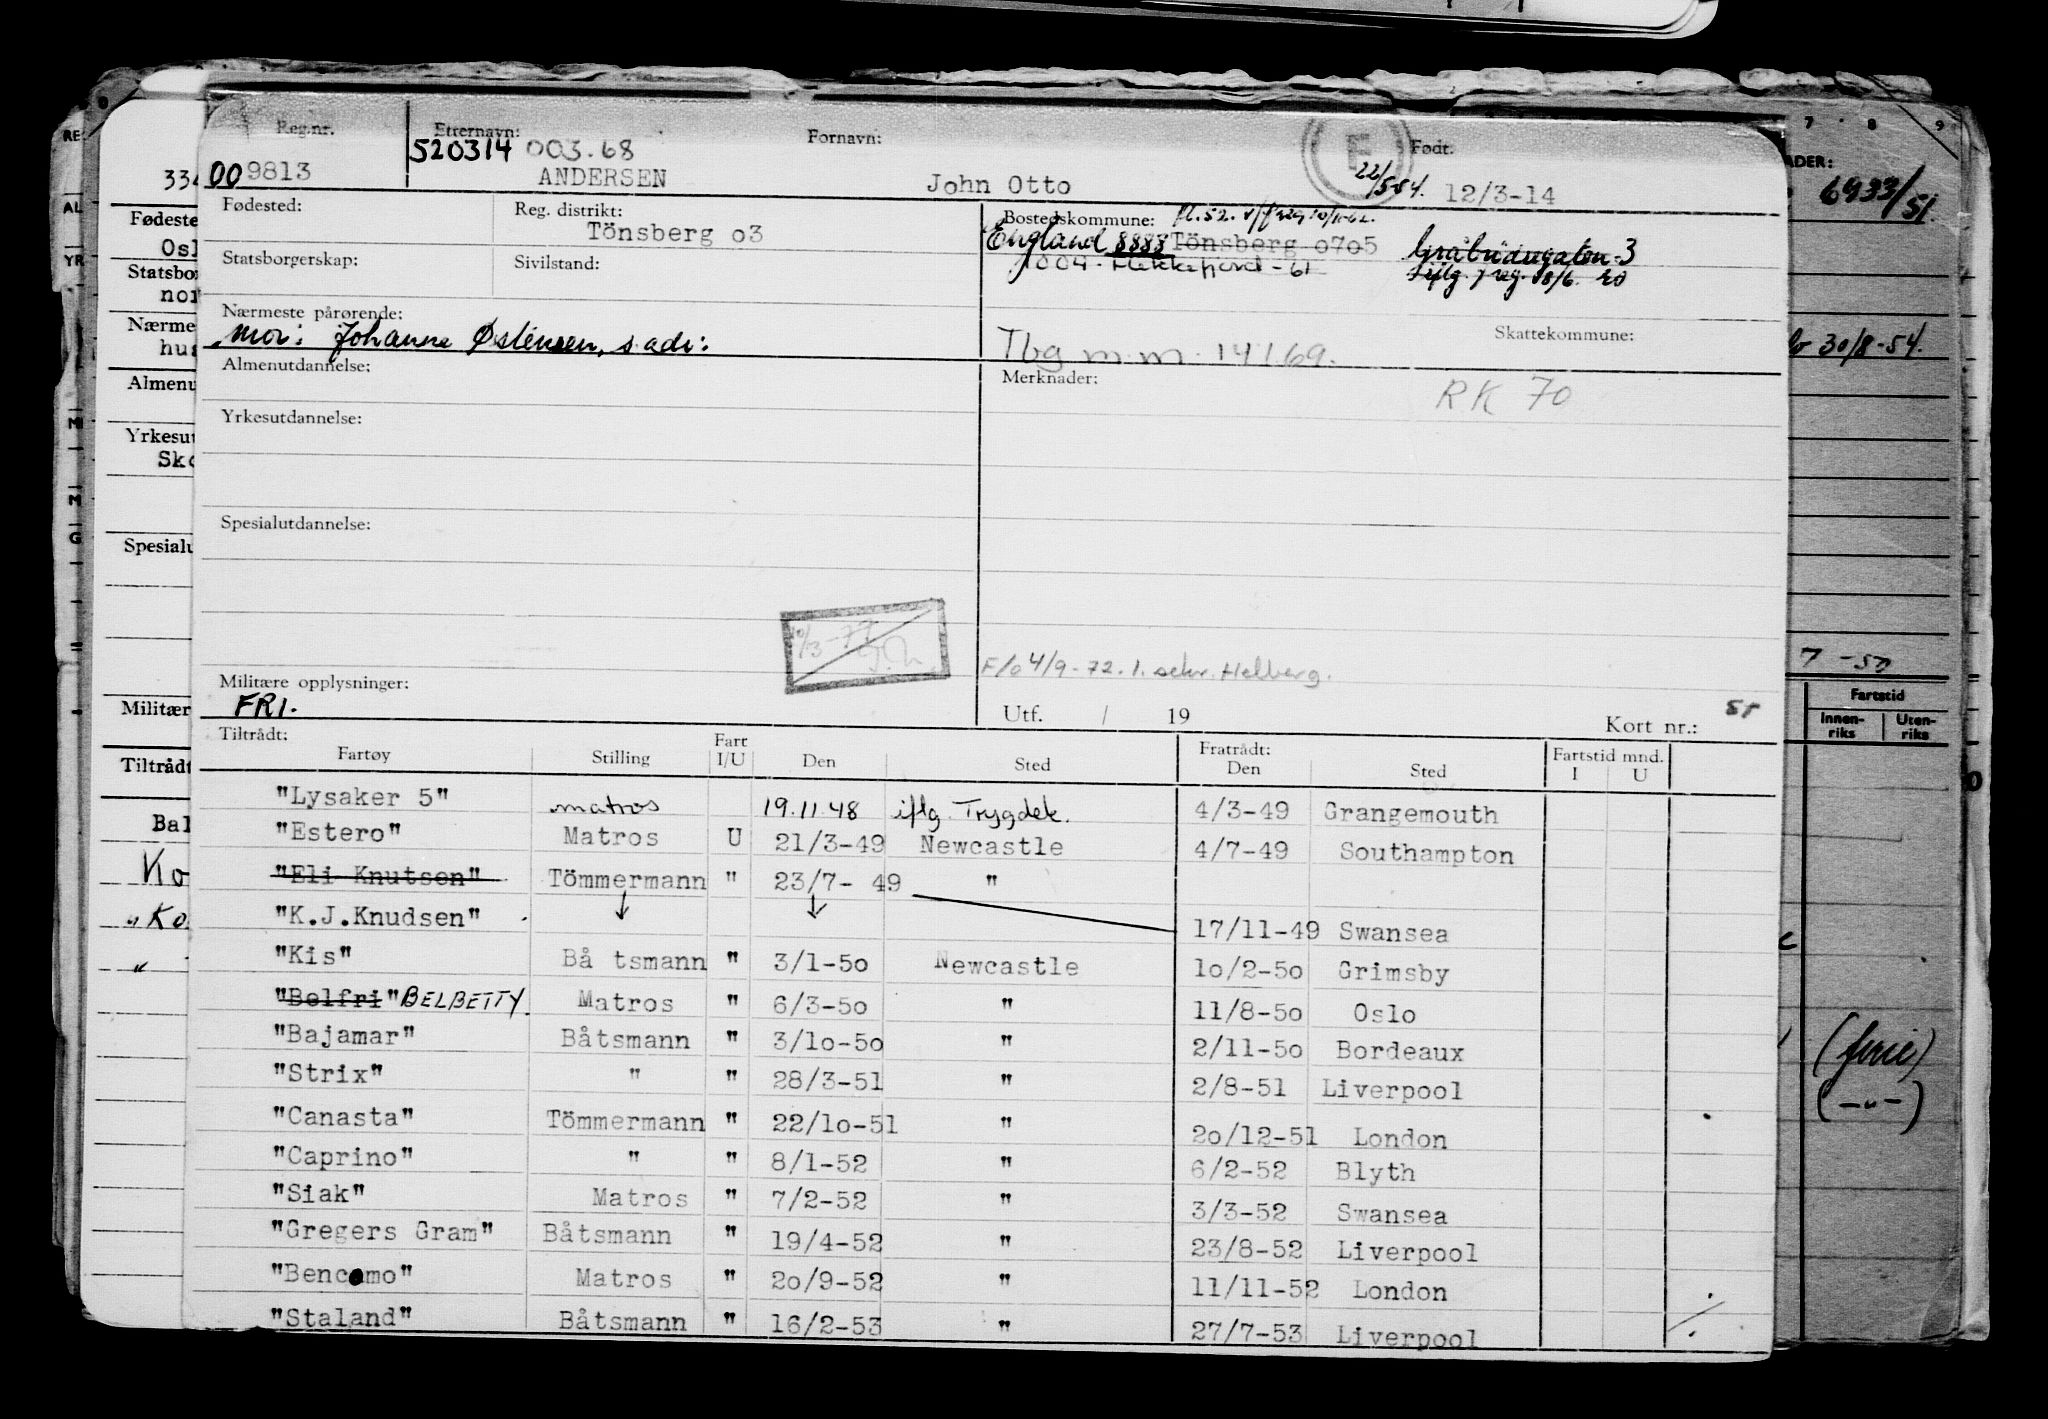 Reg.nr. Etternavn: Fornavn: Født.
520314 003.68 F
009813 ANDERSEN John Otto 22/5-54. 12/3-14
Fødested: Reg. distrikt: Bostedskommune:
Tönsberg o3 England 8888 Tönsberg o7o5
Statsborgerskap: Sivilstand: 1004 - - 61
Nærmeste pårørende: Skattekommune:
Mor: Johanne Østensen, s.adr: Tbg m.m. 14169.
Almenutdannelse: Merknader: RK 70
Yrkesutdannelse:
Spesialutdannelse:
10/3-77
F/o 4/9-72. 1. sekr. Helberg.
Militære opplysninger:
FRI. Utf. / 19 Kort nr.:
Tiltrådt: Fratrådt: Fartstid mnd.
Fartøy Stilling Fart I/U Den Sted Den Sted I U
"Lysaker 5" matros 19.11.48 iflg. Trygdek. 4/3-49 Grangemouth
"Estero" Matros U 21/3-49 Newcastle 4/7-49 Southampton
"Eli Knutsen" Tömmermann " 23/7- 49 "
"K.J.Knudsen" ↓ ↓ 17/11-49 Swansea
"Kis" Bå tsmann " 3/1-5o Newcastle 1o/2-5o Grimsby
"Belfri" BELBETTY. Matros " 6/3-5o " 11/8-5o Oslo
"Bajamar" Båtsmann " 3/1o-5o " 2/11-5o Bordeaux
"Strix" " " 28/3-51 " 2/8-51 Liverpool
"Canasta" Tömmermann " 22/1o-51 " 2o/12-51 London
"Caprino" " " 8/1-52 " 6/2-52 Blyth
"Siak" Matros " 7/2-52 " 3/3-52 Swansea
"Gregers Gram" Båtsmann " 19/4-52 " 23/8-52 Liverpool
"Bencomo" Matros " 2o/9-52 " 11/11-52 London
"Staland" Båtsmann " 16/2-53 " 27/7-53 Liverpool
6933/51.
30/8-54.
7 -50
Fartstid
Innen-riks Uten-riks
(ferie)
(-"-)